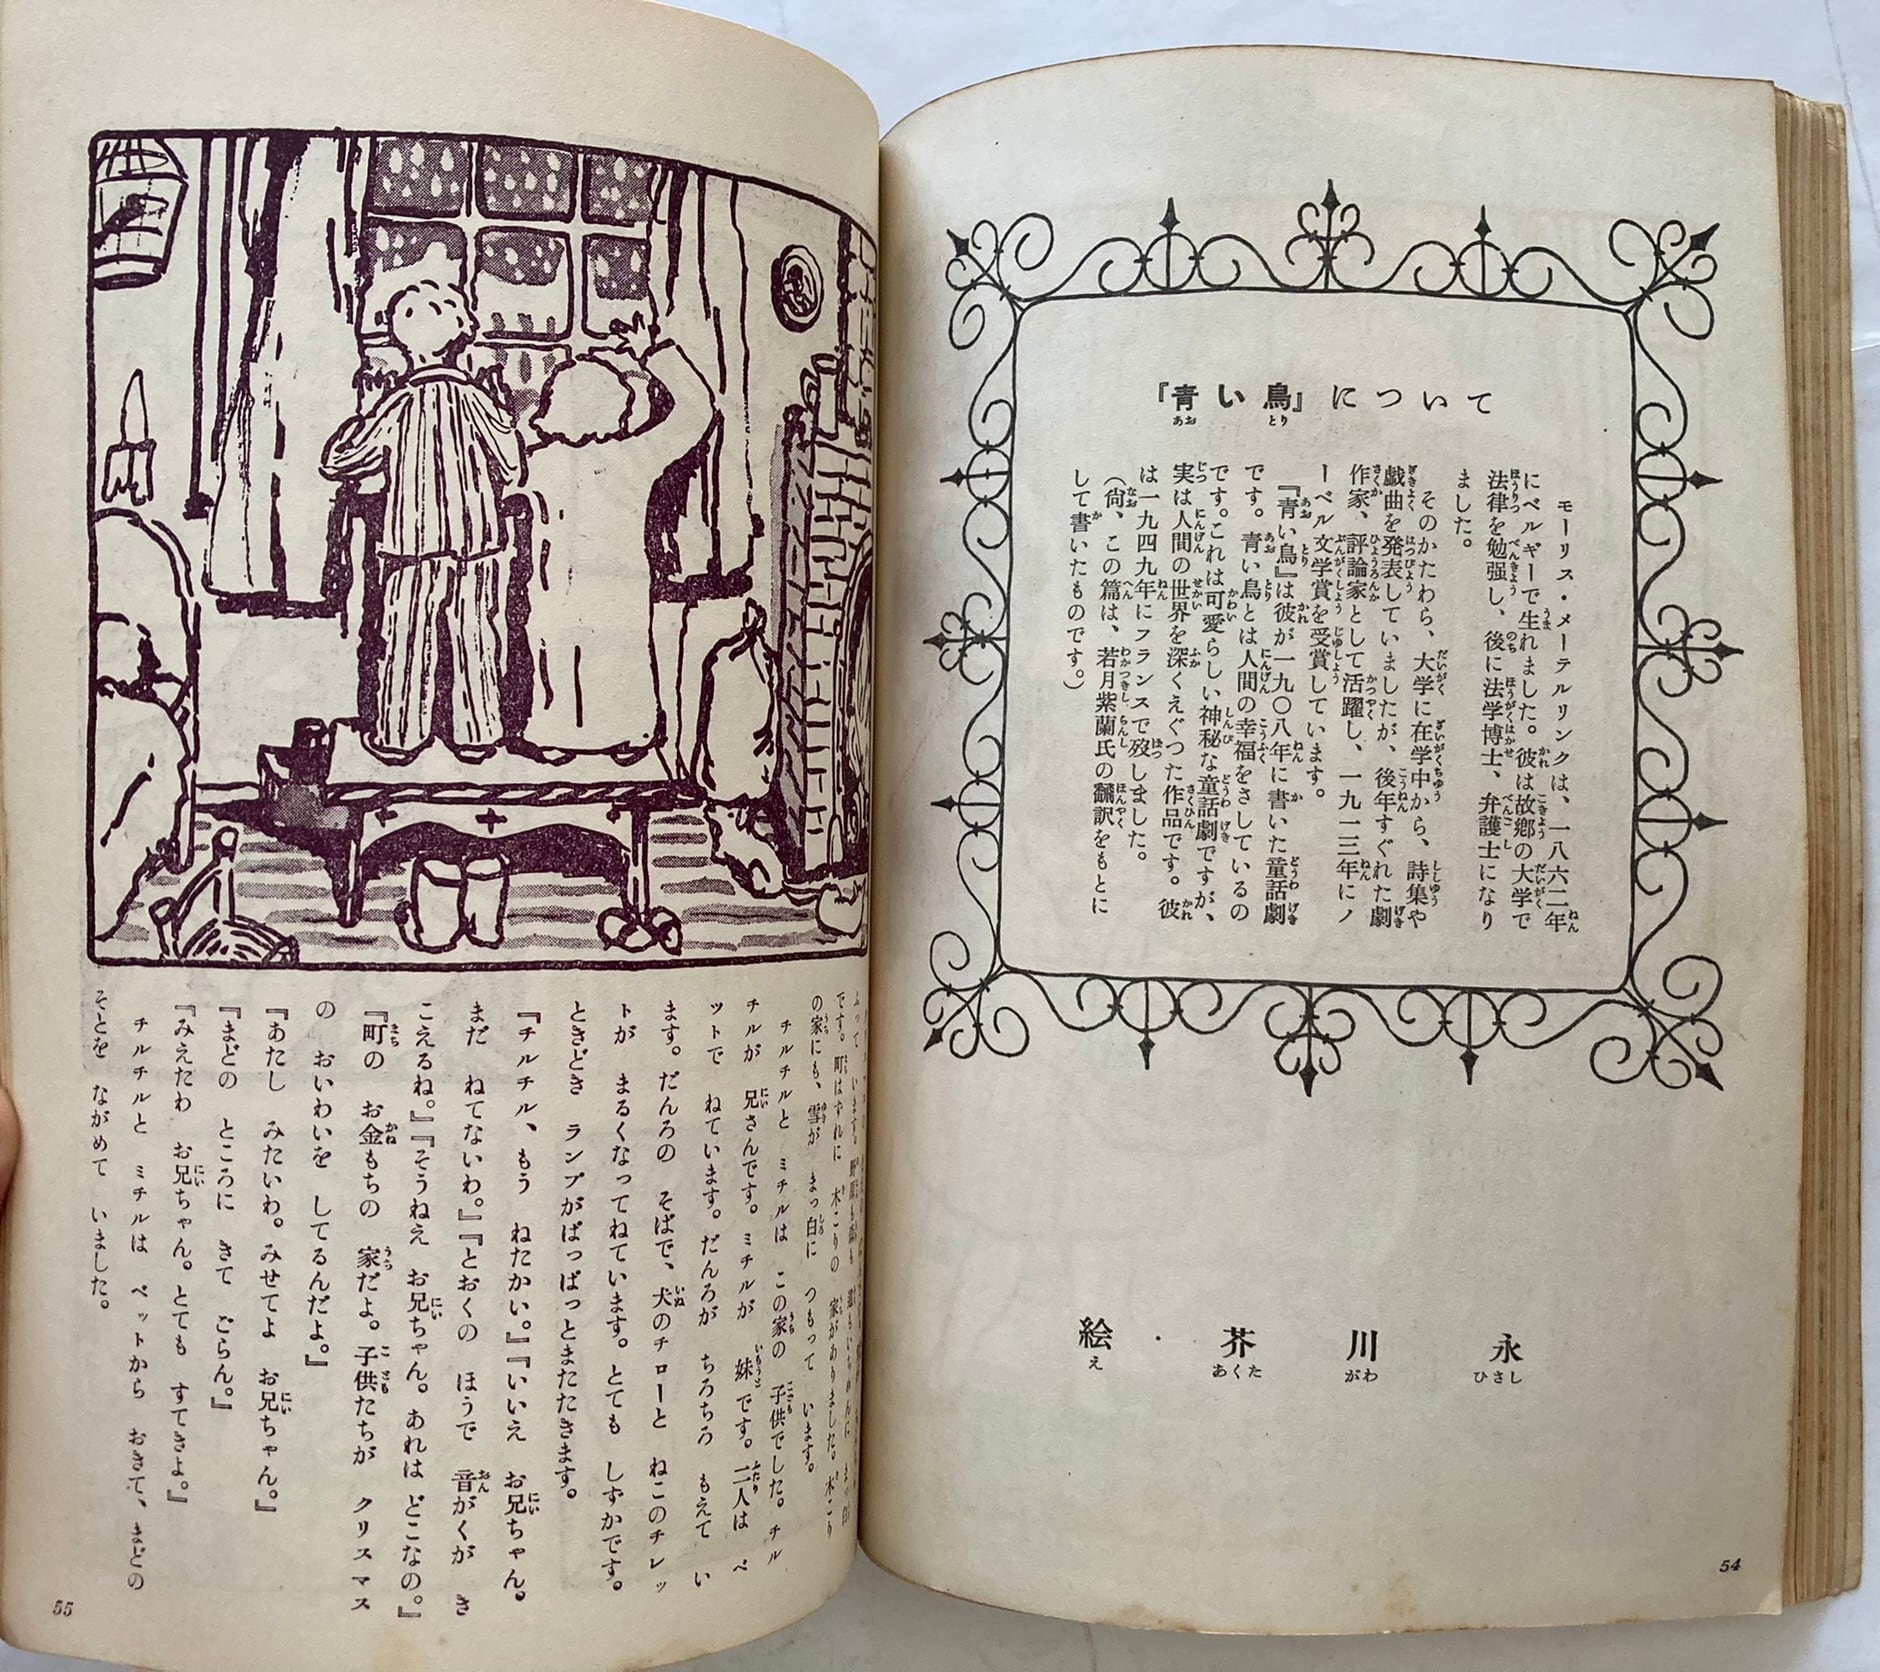 『青い鳥』について
モーリス・メーテルリンクは、一八六二年
にベルギーで生れました。彼は故郷の大学で
法律を勉强し、後に法学博士、弁護士になり
ました。
そのかたわら、大学に在学中から、詩集や
戯曲を発表していましたが、後年すぐれた劇
作家、評論家として活躍し、一九一三年にノ
ーベル文学賞を受賞しています。
『青い鳥』は彼が一九〇八年に書いた童話劇
です。青い鳥とは人間の幸福をさしているの
です。これは可愛らしい神秘な童話劇ですが、
実は人間の世界を深くえぐつた作品です。彼
は一九四九年にフランスで歿しました。
(尙、この篇は、若月紫蘭氏の飜訳をもとに
して書いたものです。)
絵・芥川永
54
です。町はずれに 木こりの 家がありました。木こり
の家にも、雪が まっ白に つもって います。
チルチルと ミチルは この家の 子供でした。チル
チルが 兄さんです。ミチルが 妹です。二人は ベ
ットで ねています。だんろが ちろちろ もえて い
ます。だんろの そばで、犬のチローと ねこのチレッ
トが まるくなってねています。とても しずかです。
ときどき ランプがぱっぱっとまたたきます。
『チルチル、もう ねたかい。』『いいえ お兄ちゃん。
まだ ねてないわ。』『とおくの ほうで 音がくが き
こえるね。』『そうねえ お兄ちゃん。あれは どこなの。』
『町の お金もちの 家だよ。子供たちが クリスマス
の おいわいを してるんだよ。』
『あたし みたいわ。みせてよ お兄ちゃん。』
『まどの ところに きて ごらん。』
『みえたわ お兄ちゃん。とても すてきよ。』
チルチルと ミチルは ベットから おきて、まどの
そとを ながめて いました。
55